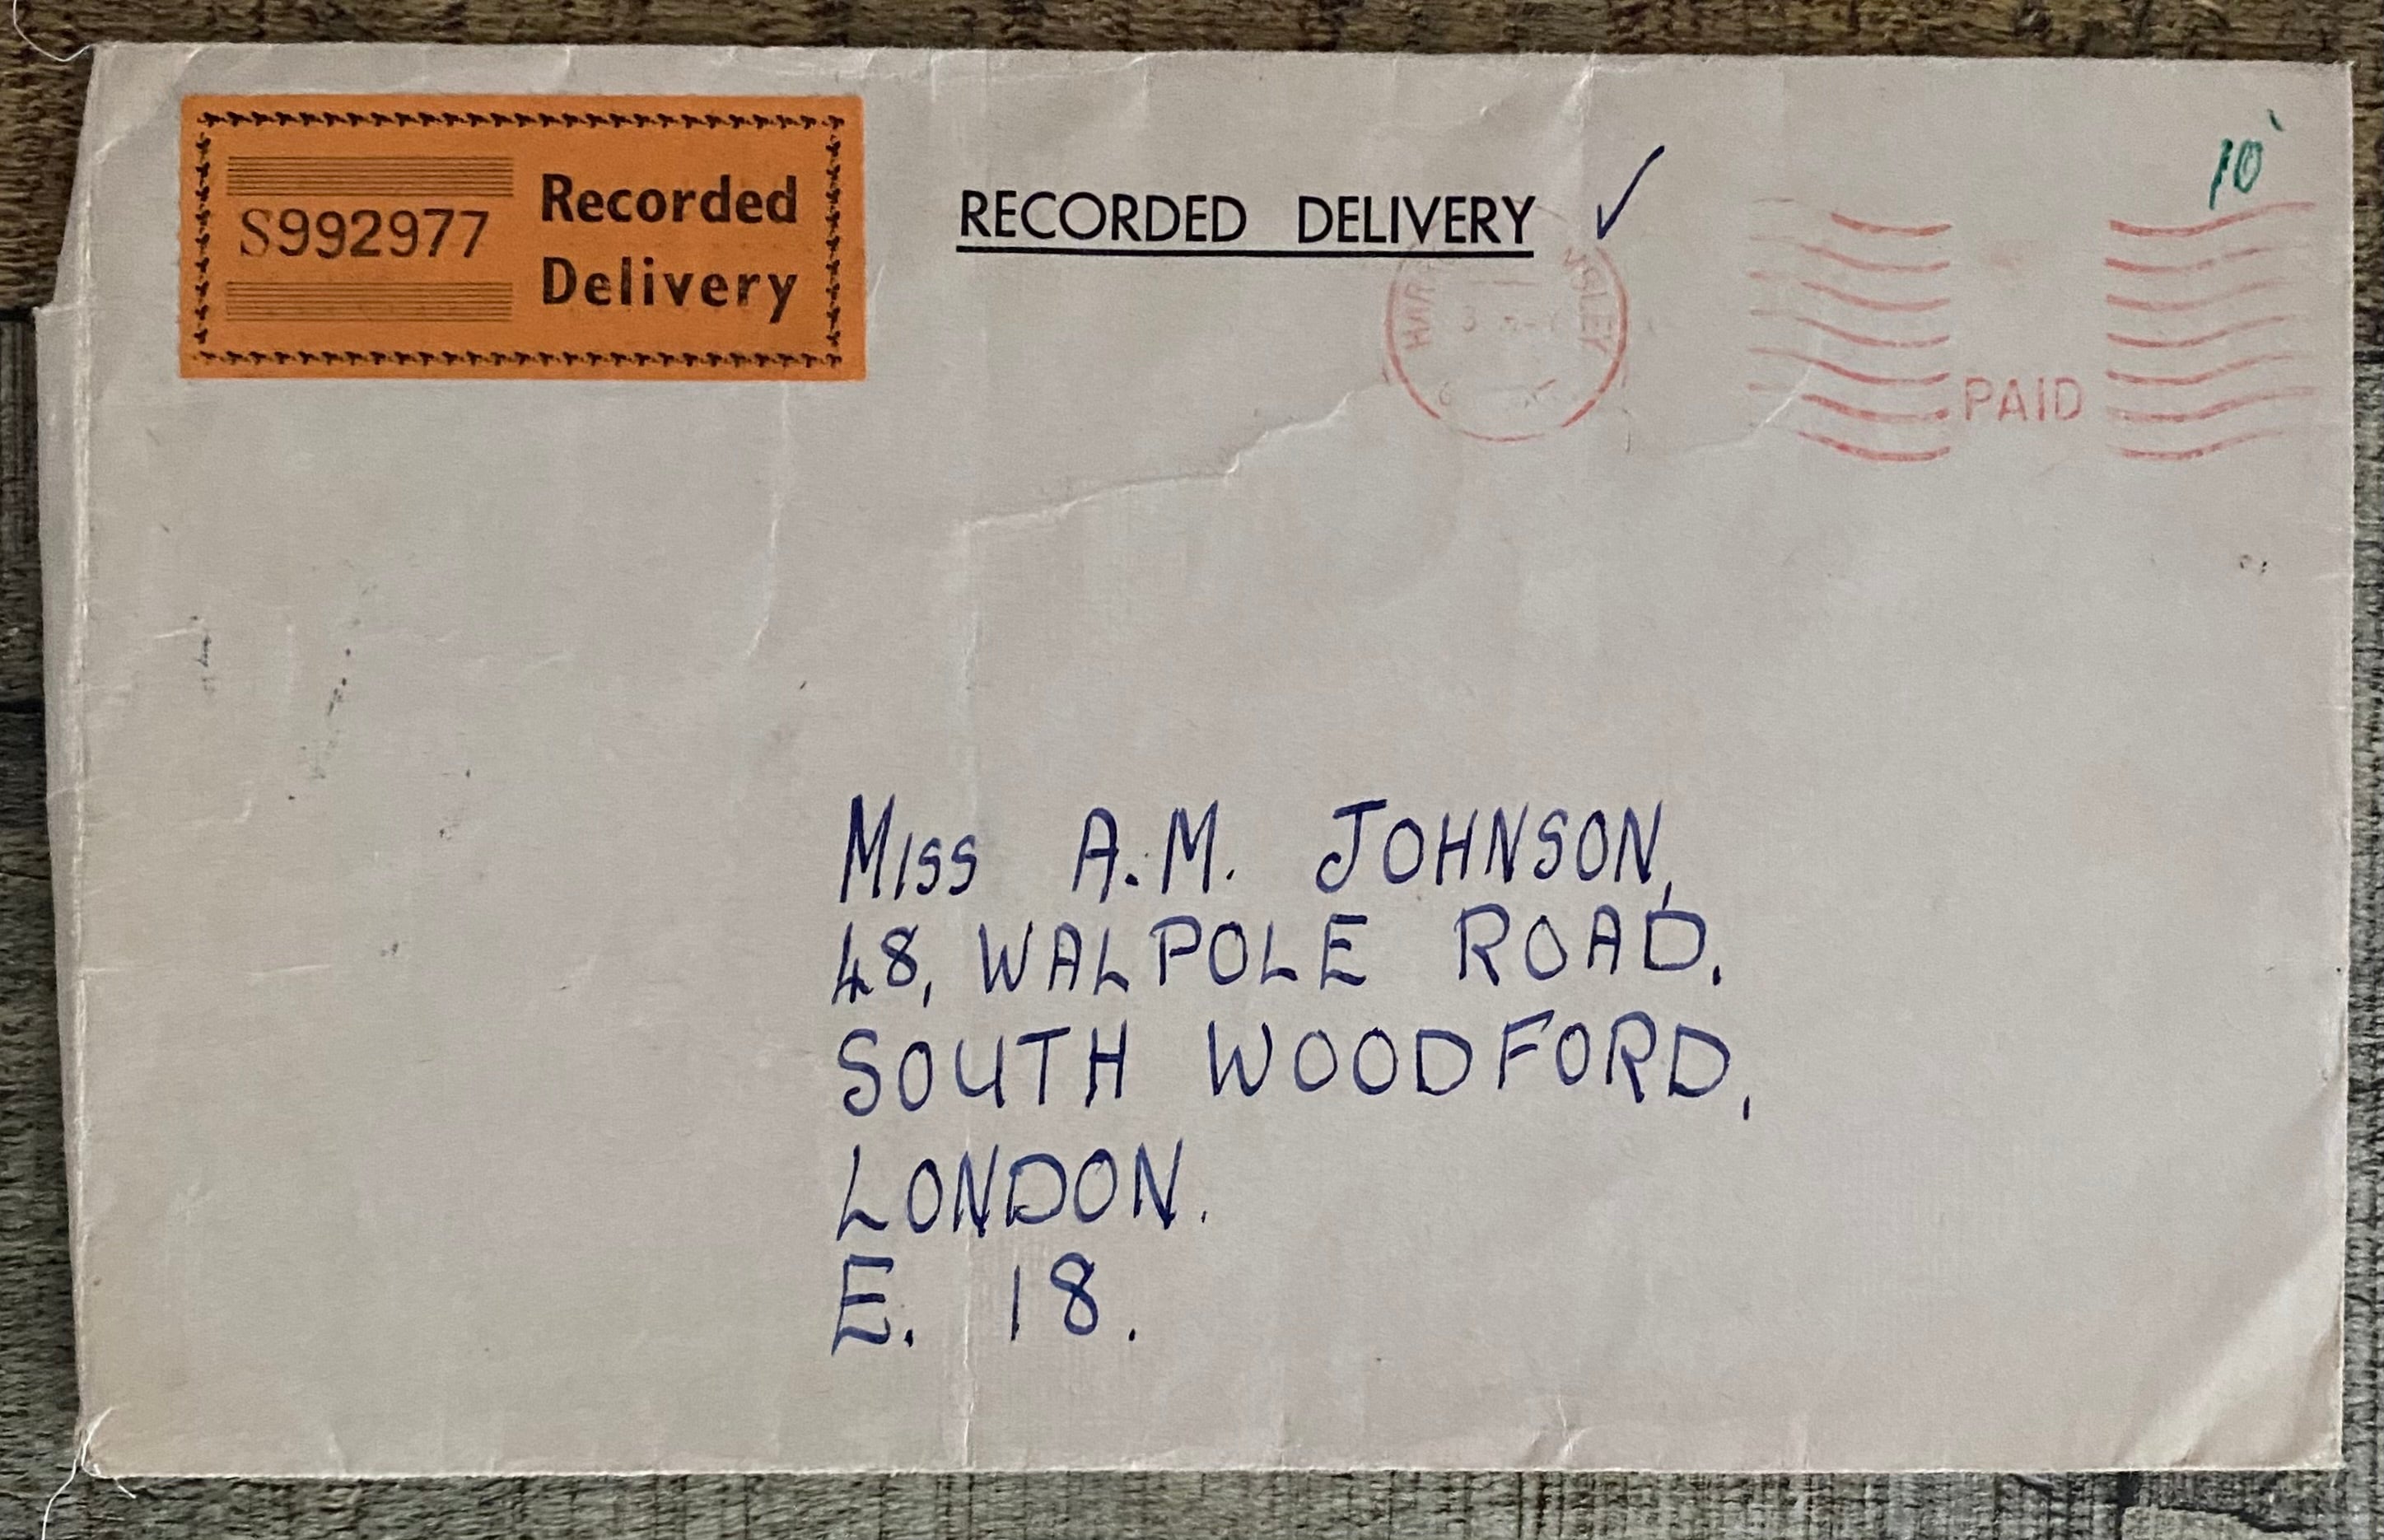 S992977
Recorded
Delivery
RECORDED DELIVERY
10
PAID
Miss A.M. JOHNSON,
48, WALPOLE ROAD.
SOUTH WOODFORD,
LONDON.
E. 18.